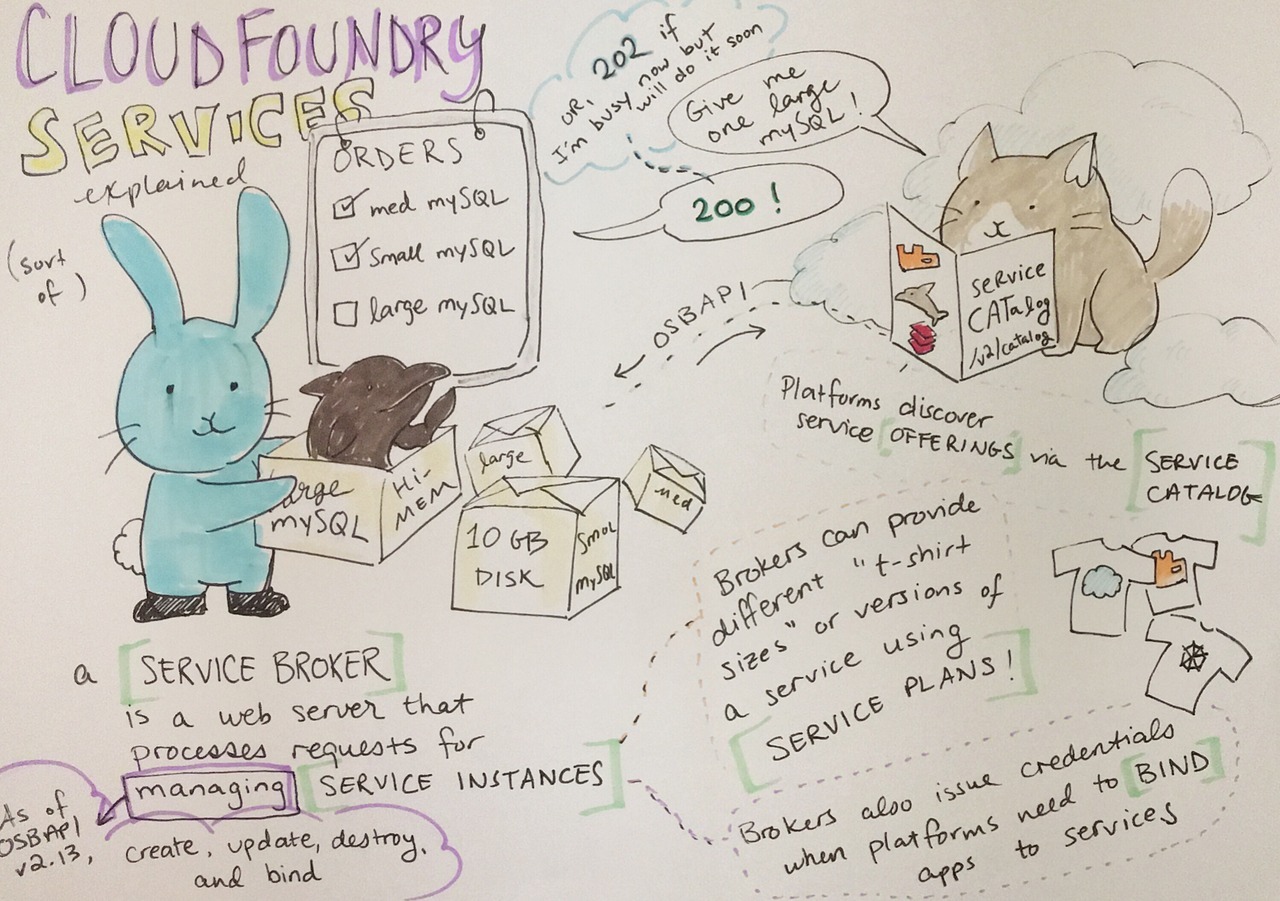 CLOUD FOUNDRY
SERVICES
explained
(sort
of)
ORDERS
med mySQL
Small mySQL
large mySQL
OR, 202 if
I'm busy now but
will do it soon
Give me
one large
mySQL!
200!
OSBAPI
service
CATalog
/v2/catalog
Platforms discover
service [OFFERINGS] via the [SERVICE
CATALOG]
large
mySQL
Hi-
MEM
large
10 GB
DISK
Smol
mySQL
med
a [SERVICE BROKER]
is a web server that
processes requests for
managing [SERVICE INSTANCES]
As of
OSBAPI
v2.13,
create, update, destroy,
and bind
Brokers can provide
different "t-shirt
sizes" or versions of
a service using
[SERVICE PLANS!]
Brokers also issue credentials
when platforms need to [BIND]
apps to services